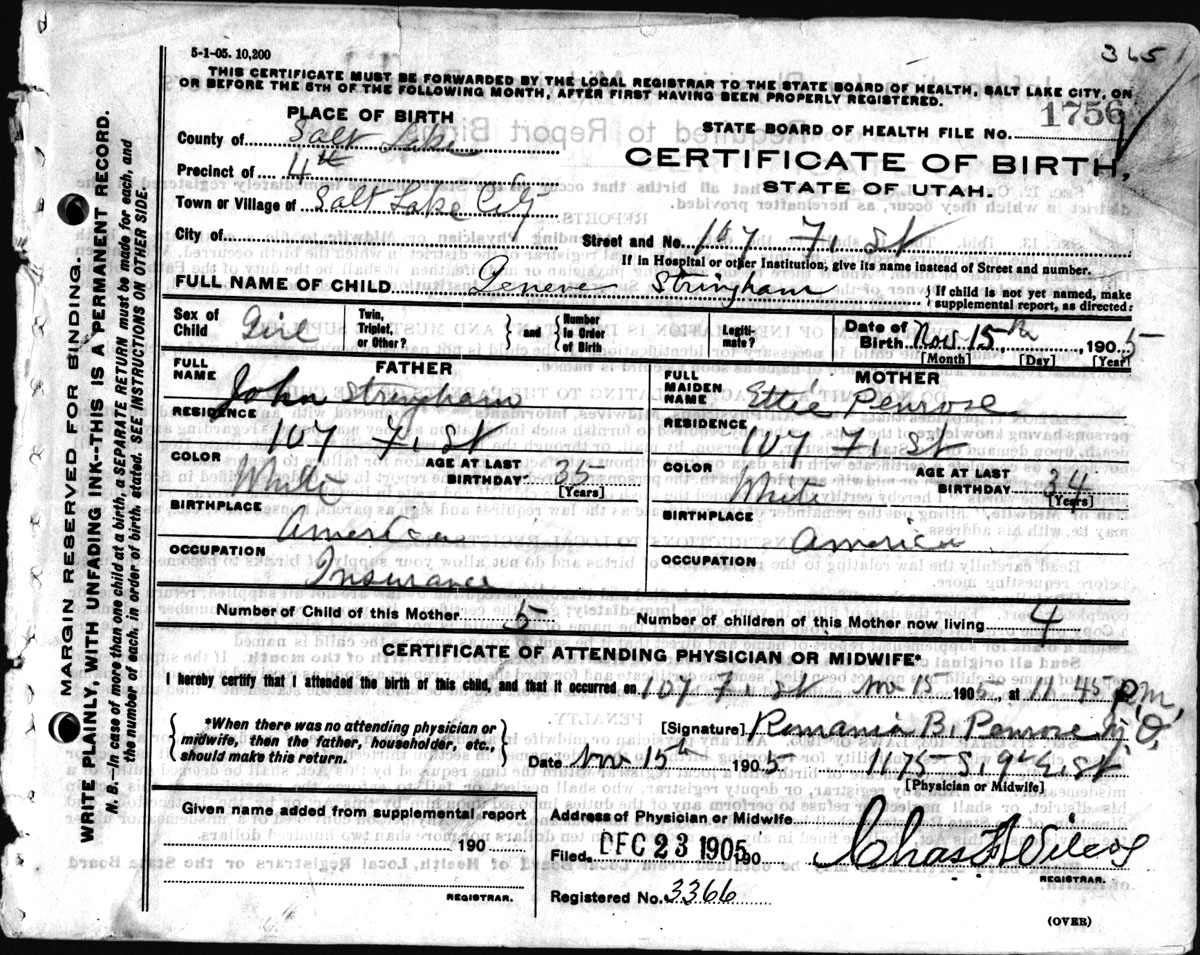 365
5-1-05. 10,200
THIS CERTIFICATE MUST BE FORWARDED BY THE LOCAL REGISTRAR TO THE STATE BOARD OF HEALTH, SALT LAKE CITY, ON
OR BEFORE THE 5TH OF THE FOLLOWING MONTH, AFTER FIRST HAVING BEEN PROPERLY REGISTERED.
PLACE OF BIRTH
County of Salt Lake
Precinct of 4th
Town or Village of Salt Lake City
City of
STATE BOARD OF HEALTH FILE NO. 1756
CERTIFICATE OF BIRTH,
STATE OF UTAH.
Street and No. 107 F. St
If in Hospital or other Institution, give its name instead of Street and number.
FULL NAME OF CHILD Geneve Stringham { If child is not yet named, make supplemental report, as directed.
Sex of Child Girl
Twin, Triplet, or Other?
and
Number in Order of Birth
Legitimate?
Date of Birth Nov 15th, 1905
[Month] [Day] [Year]
FATHER
FULL NAME John Stringham
RESIDENCE 107 F. St
COLOR White AGE AT LAST BIRTHDAY 35 [Years]
BIRTHPLACE America
OCCUPATION Insurance
MOTHER
FULL MAIDEN NAME Ettie Penrose
RESIDENCE 107 F. St
COLOR White AGE AT LAST BIRTHDAY 34 [Years]
BIRTHPLACE America
OCCUPATION
Number of Child of this Mother 5 Number of children of this Mother now living 4
CERTIFICATE OF ATTENDING PHYSICIAN OR MIDWIFE*
I hereby certify that I attended the birth of this child, and that it occurred on 107 F. St Nov 15 1905, at 11.45 P.M.
{ *When there was no attending physician or midwife, then the father, householder, etc., should make this return. }
[Signature] Romania B. Penrose M.D.
Date Nov 15th 1905 1175 S. 9th E. St
[Physician or Midwife]
Given name added from supplemental report
190
REGISTRAR.
Address of Physician or Midwife
Filed DEC 23 1905 190 Chas F Wilcox
REGISTRAR.
Registered No. 3366
(OVER)
MARGIN RESERVED FOR BINDING.
WRITE PLAINLY, WITH UNFADING INK--THIS IS A PERMANENT RECORD.
N. B.--In case of more than one child at a birth, a SEPARATE RETURN must be made for each, and
the number of each, in order of birth, stated. SEE INSTRUCTIONS ON OTHER SIDE.